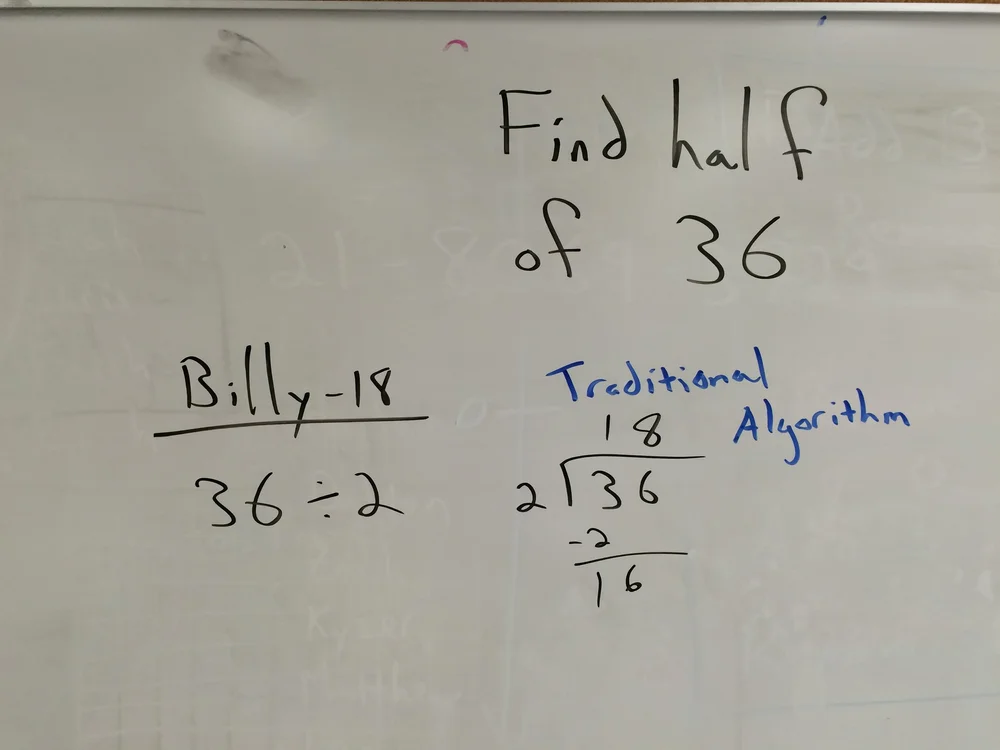 Find half
of 36
Billy-18
36÷2
Traditional
Algorithm
18
2 36
-2
16